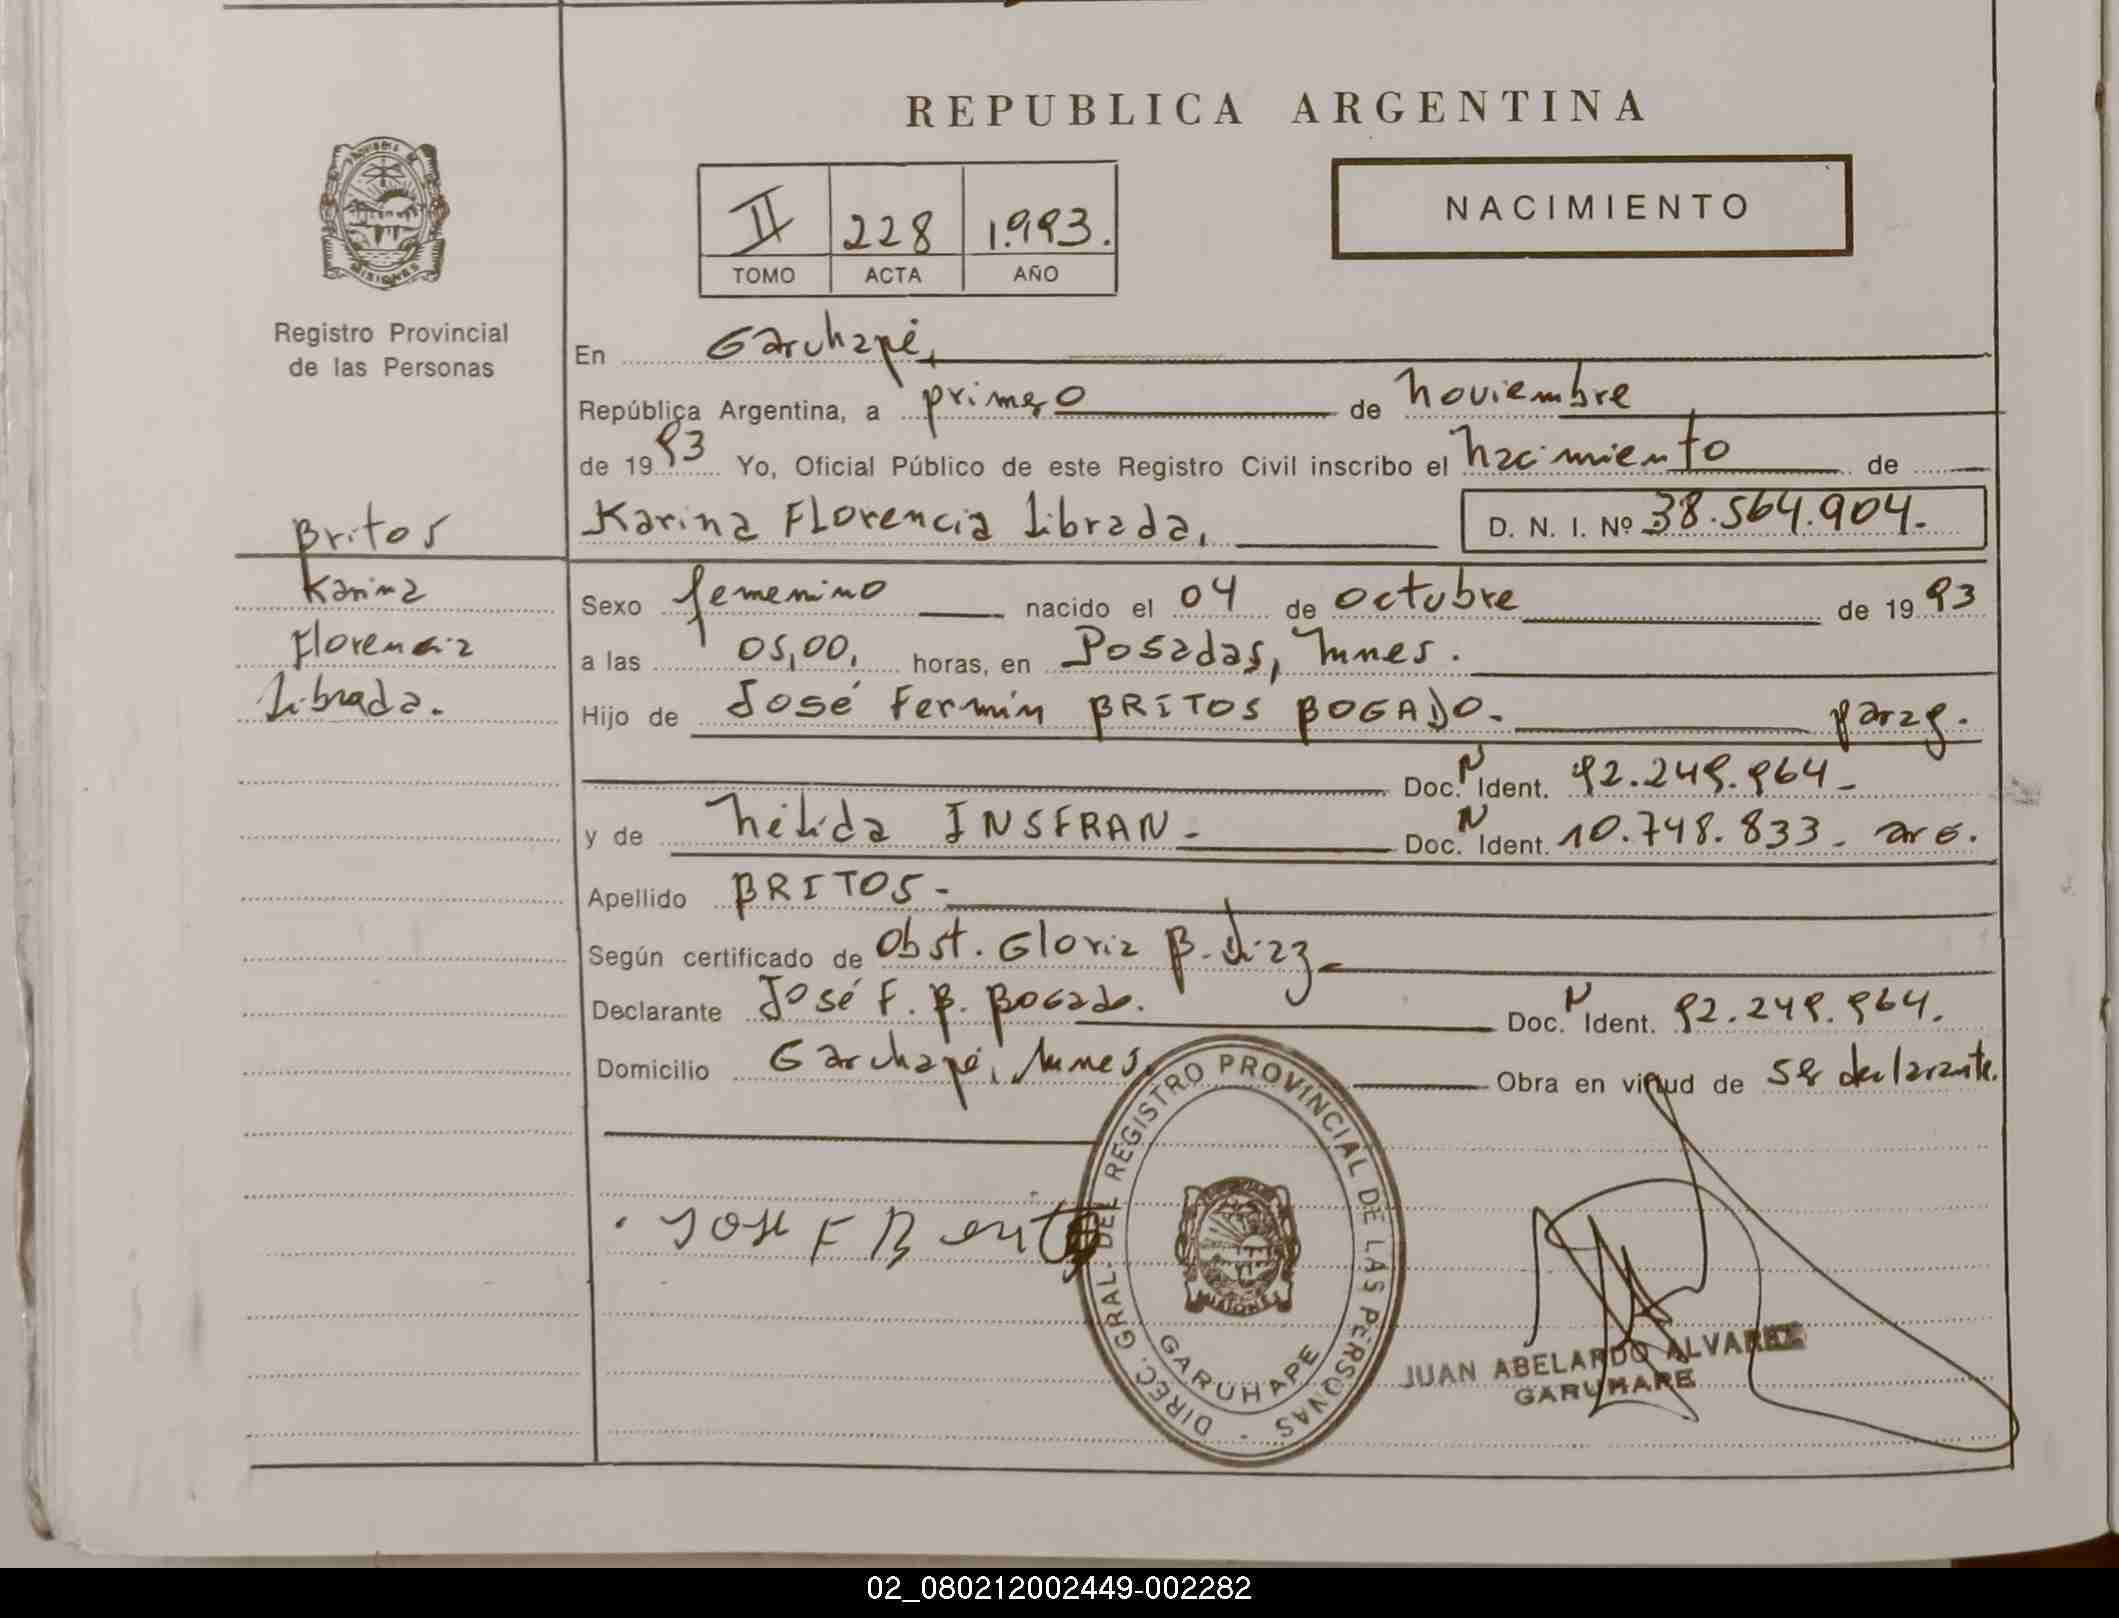 REPUBLICA ARGENTINA
II 228 1.993.
TOMO ACTA AÑO
NACIMIENTO
MISIONES
Registro Provincial
de las Personas
Britos
Karina
Florencia
Librada.
En Garuhapé,
República Argentina, a primero de noviembre
de 1993 Yo, Oficial Público de este Registro Civil inscribo el nacimiento de
Karina Florencia Librada, D. N. I. Nº 38.564.904.-
Sexo femenino nacido el 04 de octubre de 1993
a las 05,00, horas, en Posadas, Mnes.
Hijo de José Fermín BRITOS BOGADO.- parag.
Doc. N Ident. 92.249.964.-
y de Nélida INSFRAN.- Doc. N Ident. 10.748.833.- arg.
Apellido BRITOS.-
Según certificado de Obst. Gloria B. Diaz.-
Declarante José F. B. Bogado. Doc. N Ident. 92.249.964.
Domicilio Garuhapé, Mnes. Obra en virtud de ser declarante.
JOSE F B
DIREC. GRAL. DEL REGISTRO PROVINCIAL DE LAS PERSONAS
MISIONES
GARUHAPE
JUAN ABELARDO ALVAREZ
GARUHAPE
02_080212002449-002282